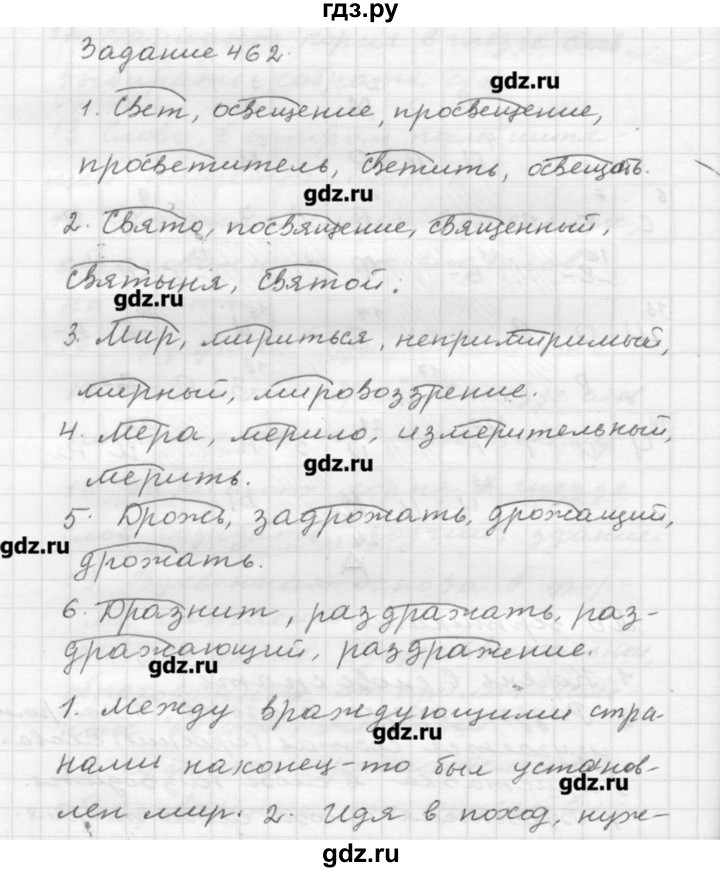 гдз.ру
Задание 462.
gdz.ru
1. Свет, освещение, просвещение,
просветитель, светить, освещать.
gdz.ru
2. Свято, посвящение, священный,
святыня, святой.
gdz.ru
3. Мир, мириться, непримиримый,
мирный, мировоззрение.
4. Мера, мерило, измерительный,
gdz.ru
мерить.
5. Дрожь, задрожать, дрожащий,
gdz.ru
дрожать.
6. Дразнит, раздражать, раз-
дражающий, раздражение.
gdz.ru
1. Между враждующими стра-
gdz.ru
нами наконец-то был установ-
gdz.ru
лен мир. 2. Идя в поход, нуж-
gdz.ru